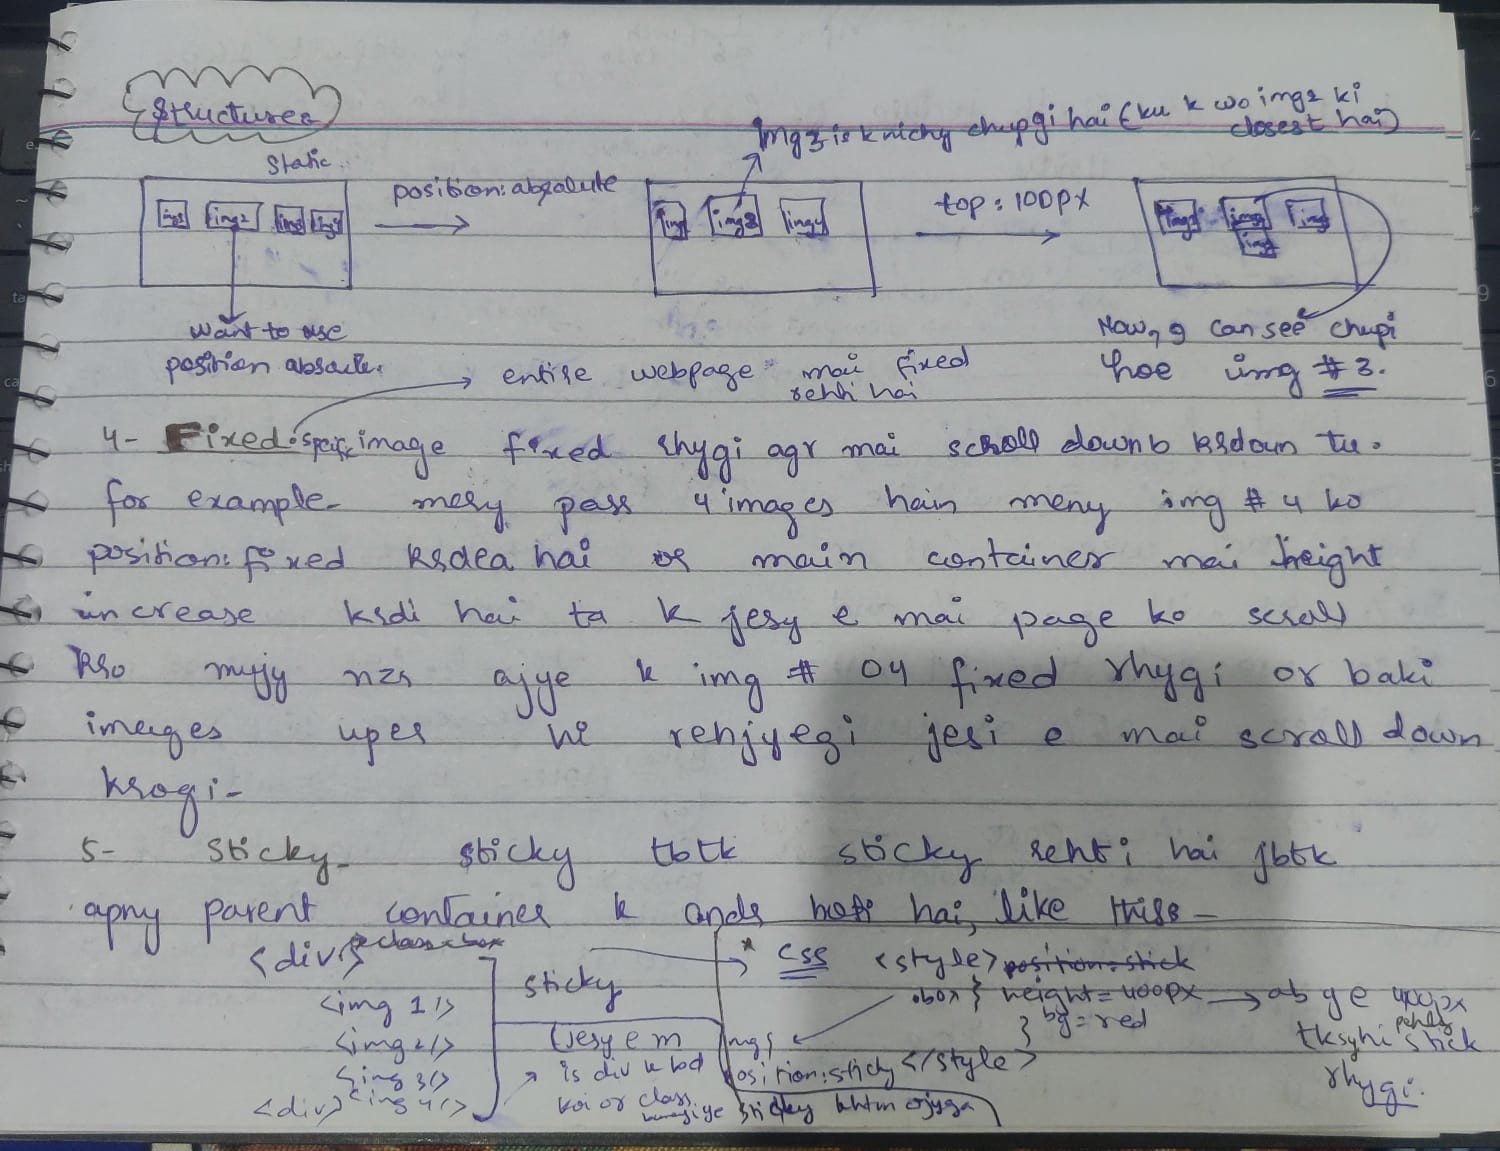 Structures
img 3 is k nichy chupgi hai (ku k wo img 2 ki
closest hai)
Static
position: absolute
top: 100px
img1
img2
img3
img4
img1
img3
img4
img1
img3
img4
img2
want to use
position absolute.
Now, I can see chupi
hoe img # 3.
entire webpage mai fixed
rehti hai
4- Fixed: image fixed rhygi agr mai scroll down krdoun tu.
for example- mery pass 4 images hain meny img # 4 ko
position: fixed krdea hai or main container mai height
increase krdi hai ta k jesy e mai page ko scroll
kro mujy nzr ajye k img # 04 fixed rhygi or baki
images uper he rehjyegi jesi e mai scroll down
krogi-
5- Sticky- sticky tbtk sticky rehti hai jbtk
apny parent container k andr hoti hai, like this-
<div class=box
<img 1/>
<img 2/>
<img 3/>
<img 4/>
<div>
sticky
(jesy e m
is div k bd
koi or class
sticky khtm
* CSS <style> position: stick
.box} height=400px
bg=red
}
img{
position: sticky </style>
ab ye 400px
tk syhi stick
rhygi.